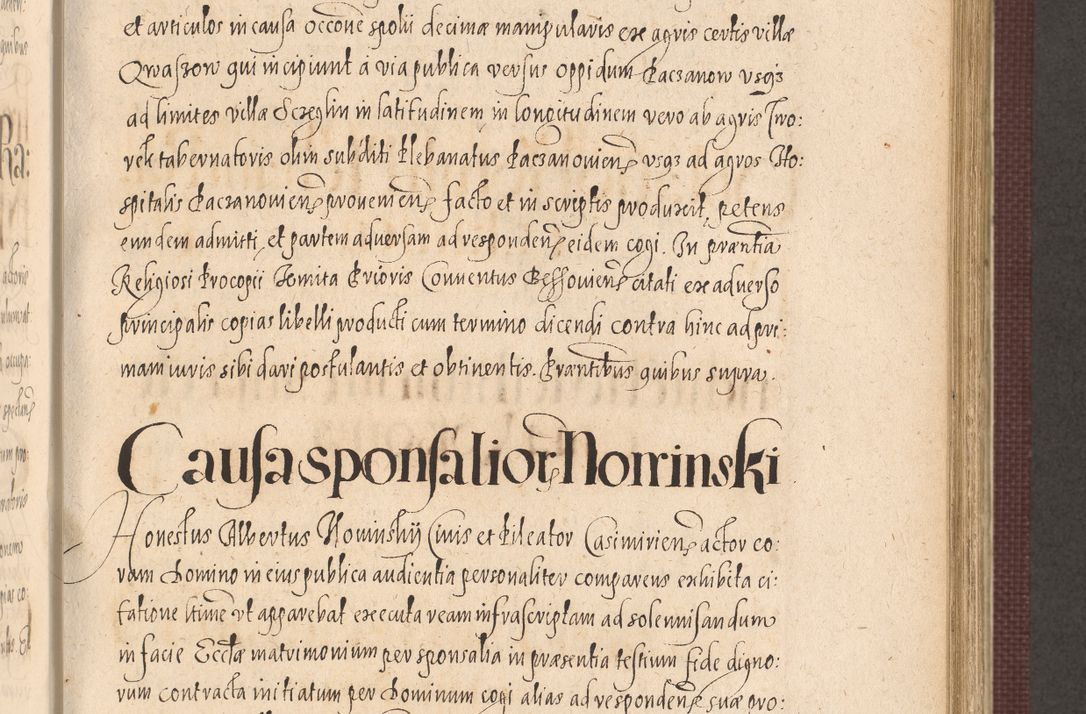 et articulos in causa occone spolii decimæ manipularis ex agris certis villæ
Qwaszow qui incipiunt a via publica versus oppidum Paczanow usq3
ad limites villæ Sczeglin in latitudinem in longitudinem vero ab agris Two:
rek tabernatoris olim subditi Plebanatus Paczanovien usq3 ad agros Ho:
spitalis Paczanovien provenien facto et in scriptis produxit, petens
eundem admitti, et partem adversam ad responden eidem cogi. In præntia
Religiosi Procopii Prioris Conventus citati ex adverso
principalis copias libelli producti cum termino dicendi contra hinc ad pri:
mam iuris sibi dari postulantis et obtinentis. Præntibus quibus supra.
Causa sponsalior Nowinski
Honestus Albertus Nowinskij Civis et Pileator Casimirien actor co:
ram Domino in eius publica audientia personaliter comparens exhibita ci:
tatione ltime ut apparebat executa ream infrascriptam ad solennisandum
in facie Ecctæ matrimonium per sponsalia in præsentia testium fide digno:
rum contracta initiatum per Dominum cogi alias ad responden suæ pro: